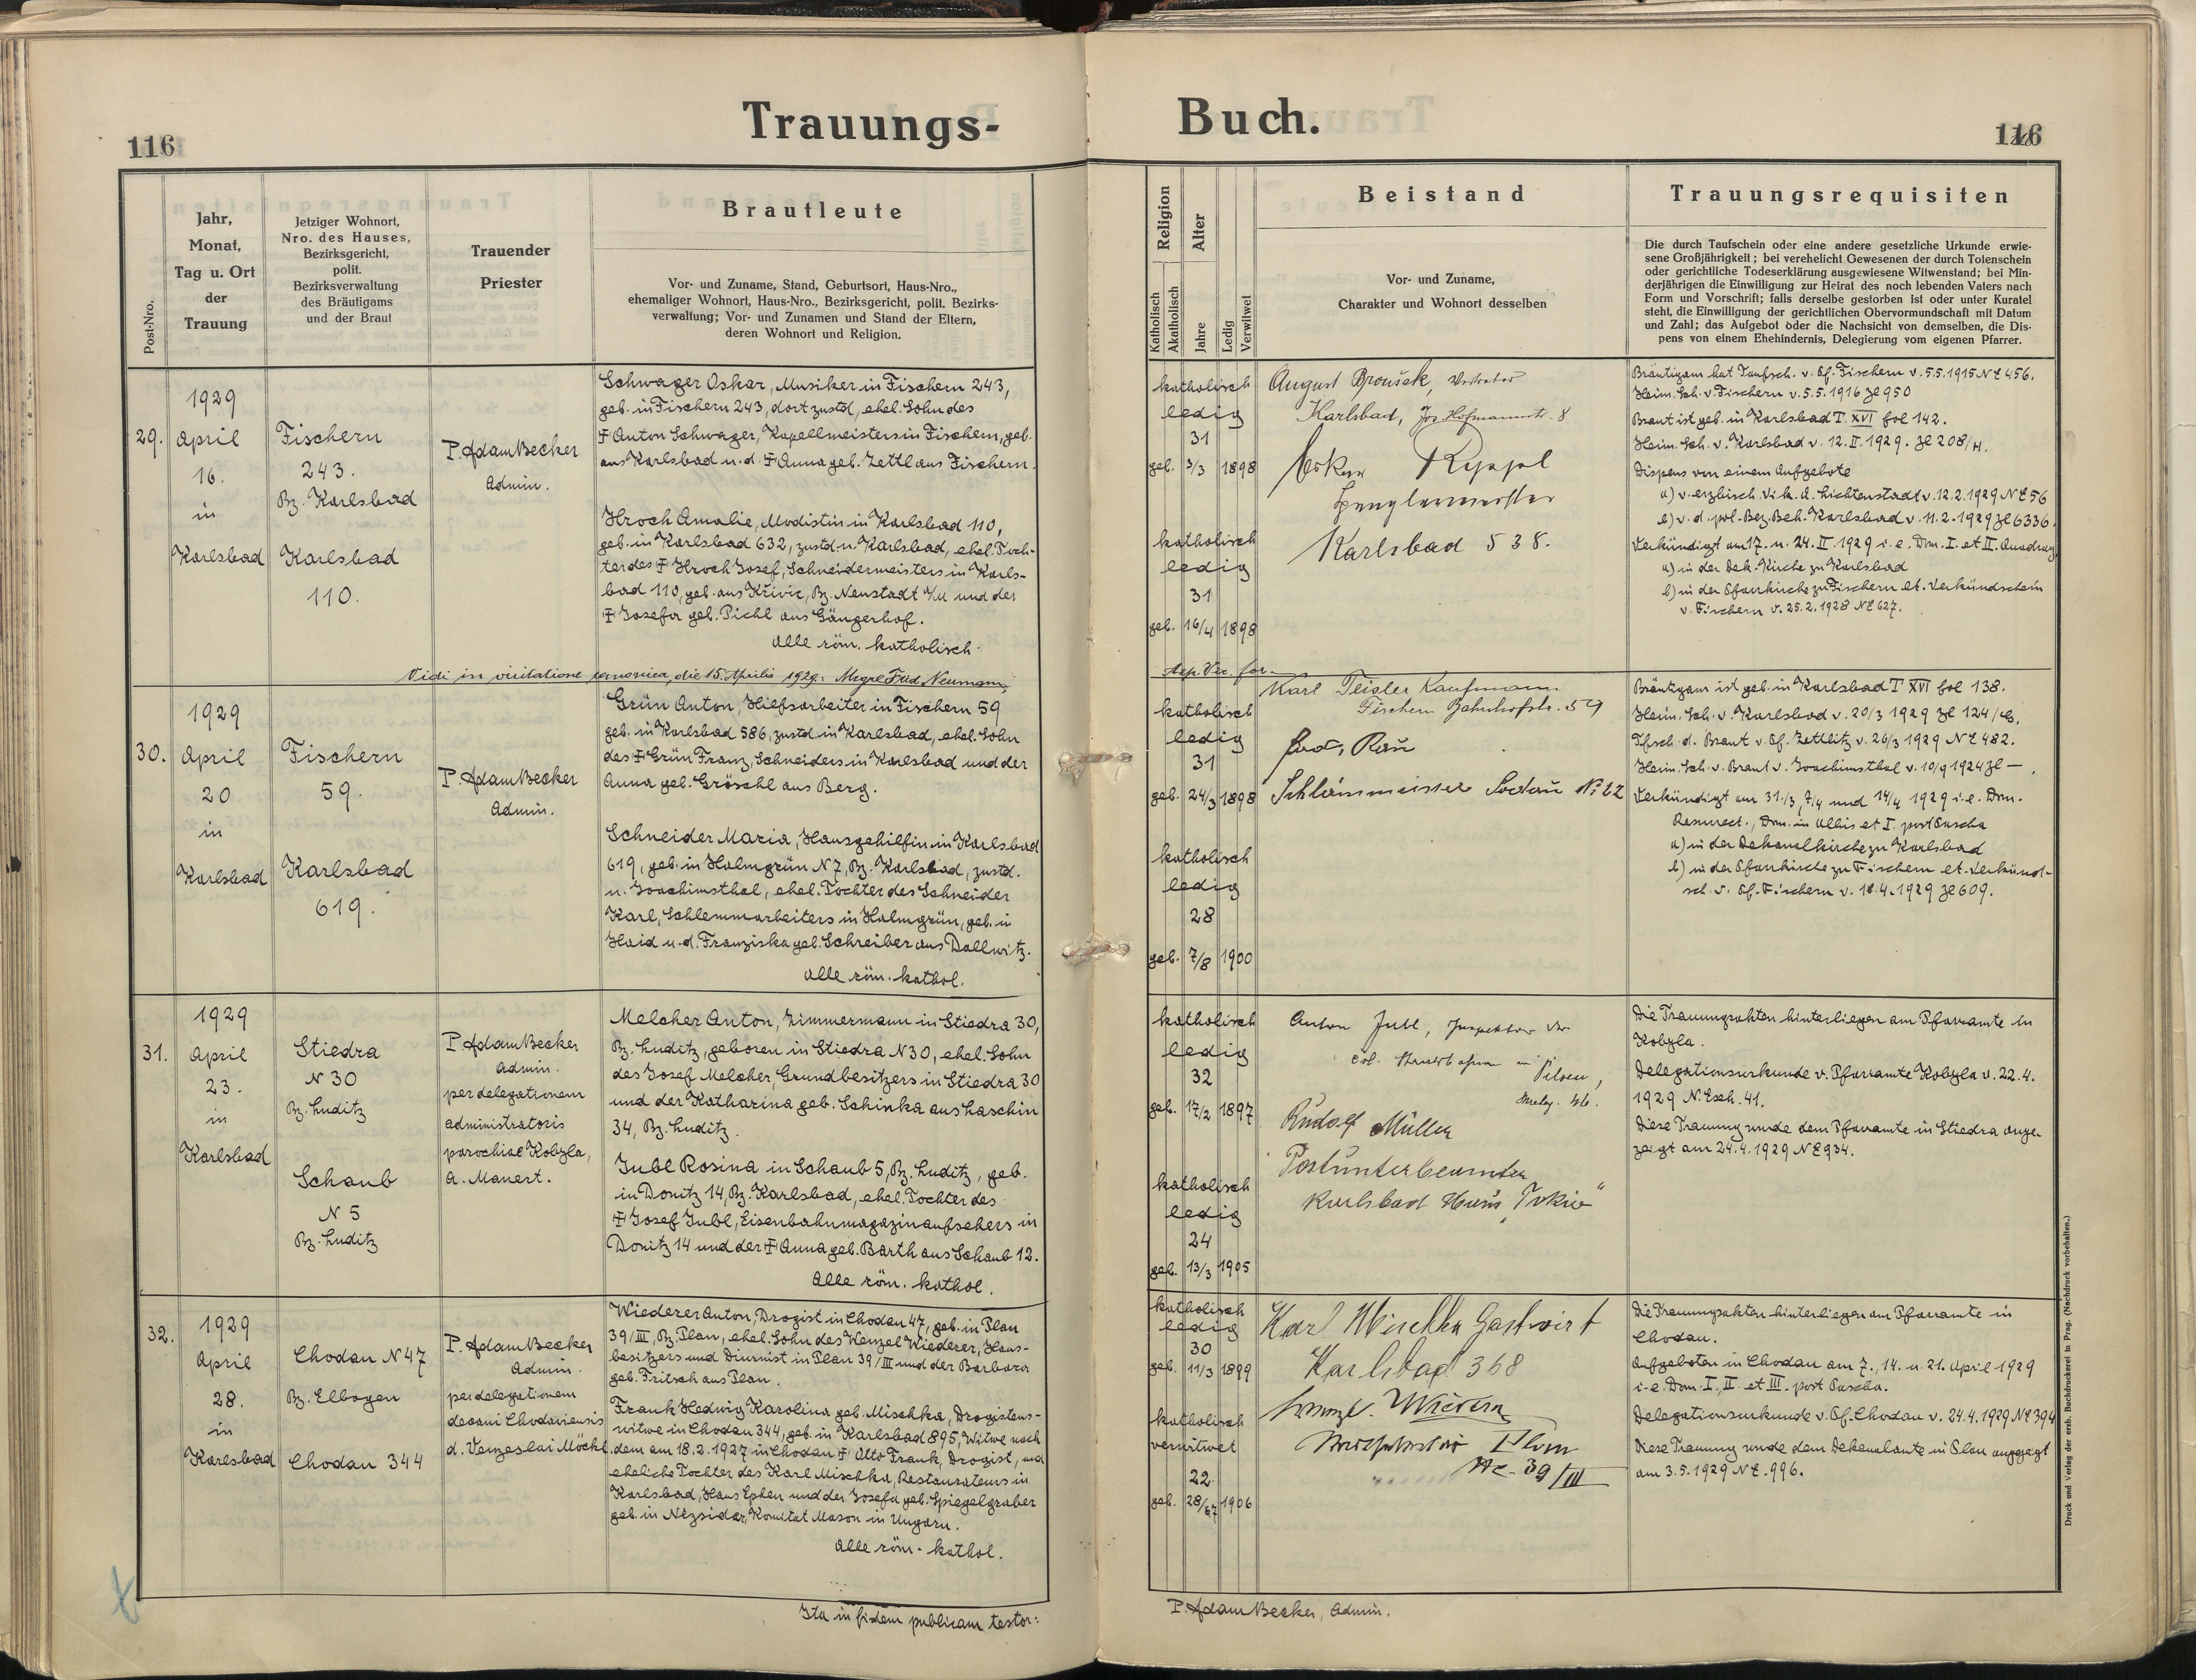 Trauungs-
Buch.
116
116
Post-Nro.
Jahr,
Monat,
Tag u. Ort
der
Trauung
Jetziger Wohnort,
Nro. des Hauses,
Bezirksgericht,
polit.
Bezirksverwaltung
des Bräutigams
und der Braut
Trauender
Priester
Brautleute
Vor- und Zuname, Stand, Geburtsort, Haus-Nro.,
ehemaliger Wohnort, Haus-Nro., Bezirksgericht, polit. Bezirks-
verwaltung; Vor- und Zunamen und Stand der Eltern,
deren Wohnort und Religion.
Religion
Katholisch
Akatholisch
Alter
Jahre
Ledig
Verwitwet
Beistand
Vor- und Zuname,
Charakter und Wohnort desselben
Trauungsrequisiten
Die durch Taufschein oder eine andere gesetzliche Urkunde erwie-
sene Großjährigkeit; bei verehelicht Gewesenen der durch Totenschein
oder gerichtliche Todeserklärung ausgewiesene Witwenstand; bei Min-
derjährigen die Einwilligung zur Heirat des noch lebenden Vaters nach
Form und Vorschrift; falls derselbe gestorben ist oder unter Kuratel
steht, die Einwilligung der gerichtlichen Obervormundschaft mit Datum
und Zahl; das Aufgebot oder die Nachsicht von demselben, die Dis-
pens von einem Ehehindernis, Delegierung vom eigenen Pfarrer.
29.
1929
April
16.
in
Karlsbad
Fischern
243.
Bz. Karlsbad
Karlsbad
110.
P. Adam Becker
Admin.
Schwager Oskar, Musiker in Fischern 243,
geb. in Fischern 243, dort zustd, ehel. Sohn des
‡ Anton Schwager, Kapellmeisters in Fischern, geb.
aus Karlsbad u. d. ‡ Anna geb. Zettl aus Fischern.
Hroch Amalie, Modistin in Karlsbad 110,
geb. in Karlsbad 632, zustd. n. Karlsbad, ehel. Toch-
ter des ‡ Hroch Josef, Schneidermeisters in Karls-
bad 110, geb. aus Křivic, Bz. Neustadt a/M und der
‡ Josefa geb. Pichl aus Gängerhof.
alle röm. katholisch.
katholisch
ledig
31
geb. 3/3 1898
katholisch
ledig
31
geb. 16/4 1898
August Broušek,
Karlsbad, Jos. Hofmannstr. 8
Oskar Rippl
Spenglermeister
Karlsbad 538.
Bräutigam hat Taufsch. v. Pf. Fischern v. 5.5.1915 NE 456.
Heim. Sch. v. Fischern v. 5.5.1916 Zl 950
Braut ist geb. in Karlsbad T. XVI fol 142.
Heim. Sch. v. Karlsbad v. 12.II.1929. Zl 208/H.
Dispens von einem Aufgebote
a) v. erzbisch. Vik. A. Lichtenstadt v. 12.2.1929 NE 56
b) v. d. pol. Bez. Beh. Karlsbad v. 11.2.1929 Zl 6336.
Verkündigt am 17. u. 24. II 1929 i. e. Dom. I. et II. Quadrag
a) in der Dek. Kirche zu Karlsbad
b) in der Pfarrkirche zu Fischern et. Verkündschein
v. Fischern v. 25.2.1928 NE 627.
Vidi in visitatione canonica, die 15. Aprilis 1929: Msgre Frid. Neumann,
Aep. Vic. for.
30.
1929
April
20
in
Karlsbad
Fischern
59.
Karlsbad
619.
P. Adam Becker
Admin.
Grün Anton, Hilfsarbeiter in Fischern 59
geb. in Karlsbad 586, zustd. in Karlsbad, ehel. Sohn
des ‡ Grün Franz, Schneiders in Karlsbad und der
Anna geb. Gröschl aus Berg.
Schneider Maria, Hausgehilfin in Karlsbad
619, geb. in Halmgrün N 7, Bz. Karlsbad, zustd.
n. Joachimsthal, ehel. Tochter des Schneider
Karl, Schlemmarbeiters in Halmgrün, geb. in
Haid u. d. Franziska geb. Schreiber aus Dallwitz.
alle röm. kathol.
katholisch
ledig
31
geb. 24/3 1898
katholisch
ledig
28
geb. 7/8 1900
Karl Teisler Kaufmann
Fischern Bahnhofstr. 59
Rau
Schlämmeister Sodau N: 22
Bräutigam ist geb. in Karlsbad T XVI fol 138.
Heim. Sch. v. Karlsbad v. 20/3 1929 Zl 124/G.
Tfsch. d. Braut v. Pf. Zettlitz v. 26/3 1929 NE 482.
Heim. Sch. v. Braut v. Joachimsthal v. 10/9 1924 Zl —.
Verkündigt am 31./3, 7/4 und 14/4 1929 i. e. Dom.
Resurrect., Dom. in Albis et I. post Pascha
a) in der Dekanalkirche zu Karlsbad
b) in der Pfarrkirche zu Fischern et. Verkünd-
sch. v. Pf. Fischern v. 18.4.1929 Zl 609.
31.
1929
April
23.
in
Karlsbad
Stiedra
N 30
Bz. Luditz
Schaub
N 5
Bz. Luditz
P. Adam Becker
Admin.
per delegationem
administratoris
parochiae Kobyla,
A. Manert.
Melcher Anton, Zimmermann in Stiedra 30,
Bz. Luditz, geboren in Stiedra N 30, ehel. Sohn
des Josef Melcher, Grundbesitzers in Stiedra 30
und der Katharina geb. Schinka aus Laschin
34, Bz. Luditz.
Jubl Rosina in Schaub 5, Bz. Luditz, geb.
in Donitz 14, Bz. Karlsbad, ehel. Tochter des
‡ Josef Jubl, Eisenbahnmagazinaufsehers in
Donitz 14 und der ‡ Anna geb. Barth aus Schaub 12.
alle röm. kathol.
katholisch
ledig
32
geb. 17/2 1897
katholisch
ledig
24
geb. 13/3 1905
Anton Jubl, Inspektor der
čsl. Staatsbahn in
Pilsen,
Rudolf Müller
Postunterbeamter
Karlsbad Haus „Tokio“
Die Trauungsakten hinterliegen am Pfarramte in
Kobyla.
Delegationsurkunde v. Pfarramte Kobyla v. 22.4.
1929 N. Exh. 41.
Diese Trauung wurde dem Pfarramte in Stiedra ange-
zeigt am 24.4.1929 NE 934.
32.
1929
April
28.
in
Karlsbad
Chodau N 47
Bz. Elbogen
Chodau 344
P. Adam Becker
Admin.
per delegationem
decani Chodaviensis
d. Venzeslai Möckl
Wiederer Anton, Drogist in Chodau 47, geb. in Plan
39/III, Bz. Plan, ehel. Sohn des Wenzel Wiederer, Haus-
besitzers und Diurnist in Plan 39/III und der Barbara
geb. Fritsch aus Plan.
Frank Hedwig Karolina geb. Mischka, Drogistens-
witwe in Chodau 344, geb. in Karlsbad 895, Witwe nach
dem am 18.2.1927 in Chodau ‡ Otto Frank, Drogist, und
eheliche Tochter des Karl Mischka, Restaurateurs in
Karlsbad, Haus Epheu und der Josefa geb. Spiegelgraber
geb. in Nézsider, Komitat Moson in Ungarn.
alle röm. kathol.
katholisch
ledig
30
geb. 11/3 1899
katholisch
verwitwet
22
geb. 1906
Karl Mischka Gastwirt
Karlsbad 368
Wenzl. Wiederer
Plan
Nr. 39/III
Die Trauungsakten hinterliegen am Pfarramte in
Chodau.
Aufgeboten in Chodau am 7., 14. u. 21. April 1929
i. e. Dom. I., II. et III. post Pascha.
Delegationsurkunde v. Pf. Chodau v. 24.4.1929 NE 394
Diese Trauung wurde dem Dekanalamte in Plan angezeigt
am 3.5.1929 NE. 996.
Ita in fidem publicam testor:
P. Adam Becker, Admin.
Druck und Verlag der erzb. Buchdruckerei in Prag. (Nachdruck vorbehalten.)